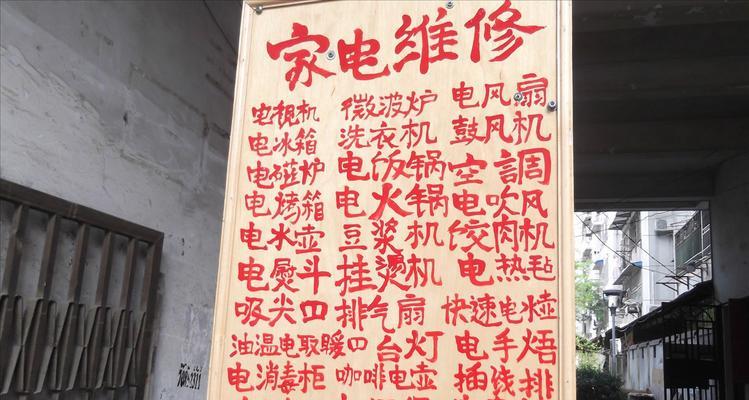 家电维修
电视机 微波炉 电风扇
电冰箱 洗衣机 鼓风机
电磁炉 电饭锅 空調
电烤箱 电火锅 电吹风
电水壶 豆浆机 饺肉机
电熨斗 挂烫机 电热毡
吸尖口 排气扇 快速电水壶
油温电取暖口 台灯 电手焐
电消毒柜 咖啡电壶 插线排